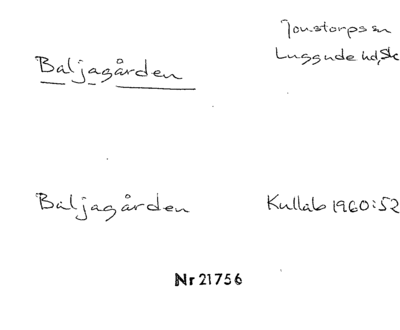 Jonstorps sn
Baljagården
Luggude hd, Sk
Baljagården Kullab 1960:52
Nr 21756